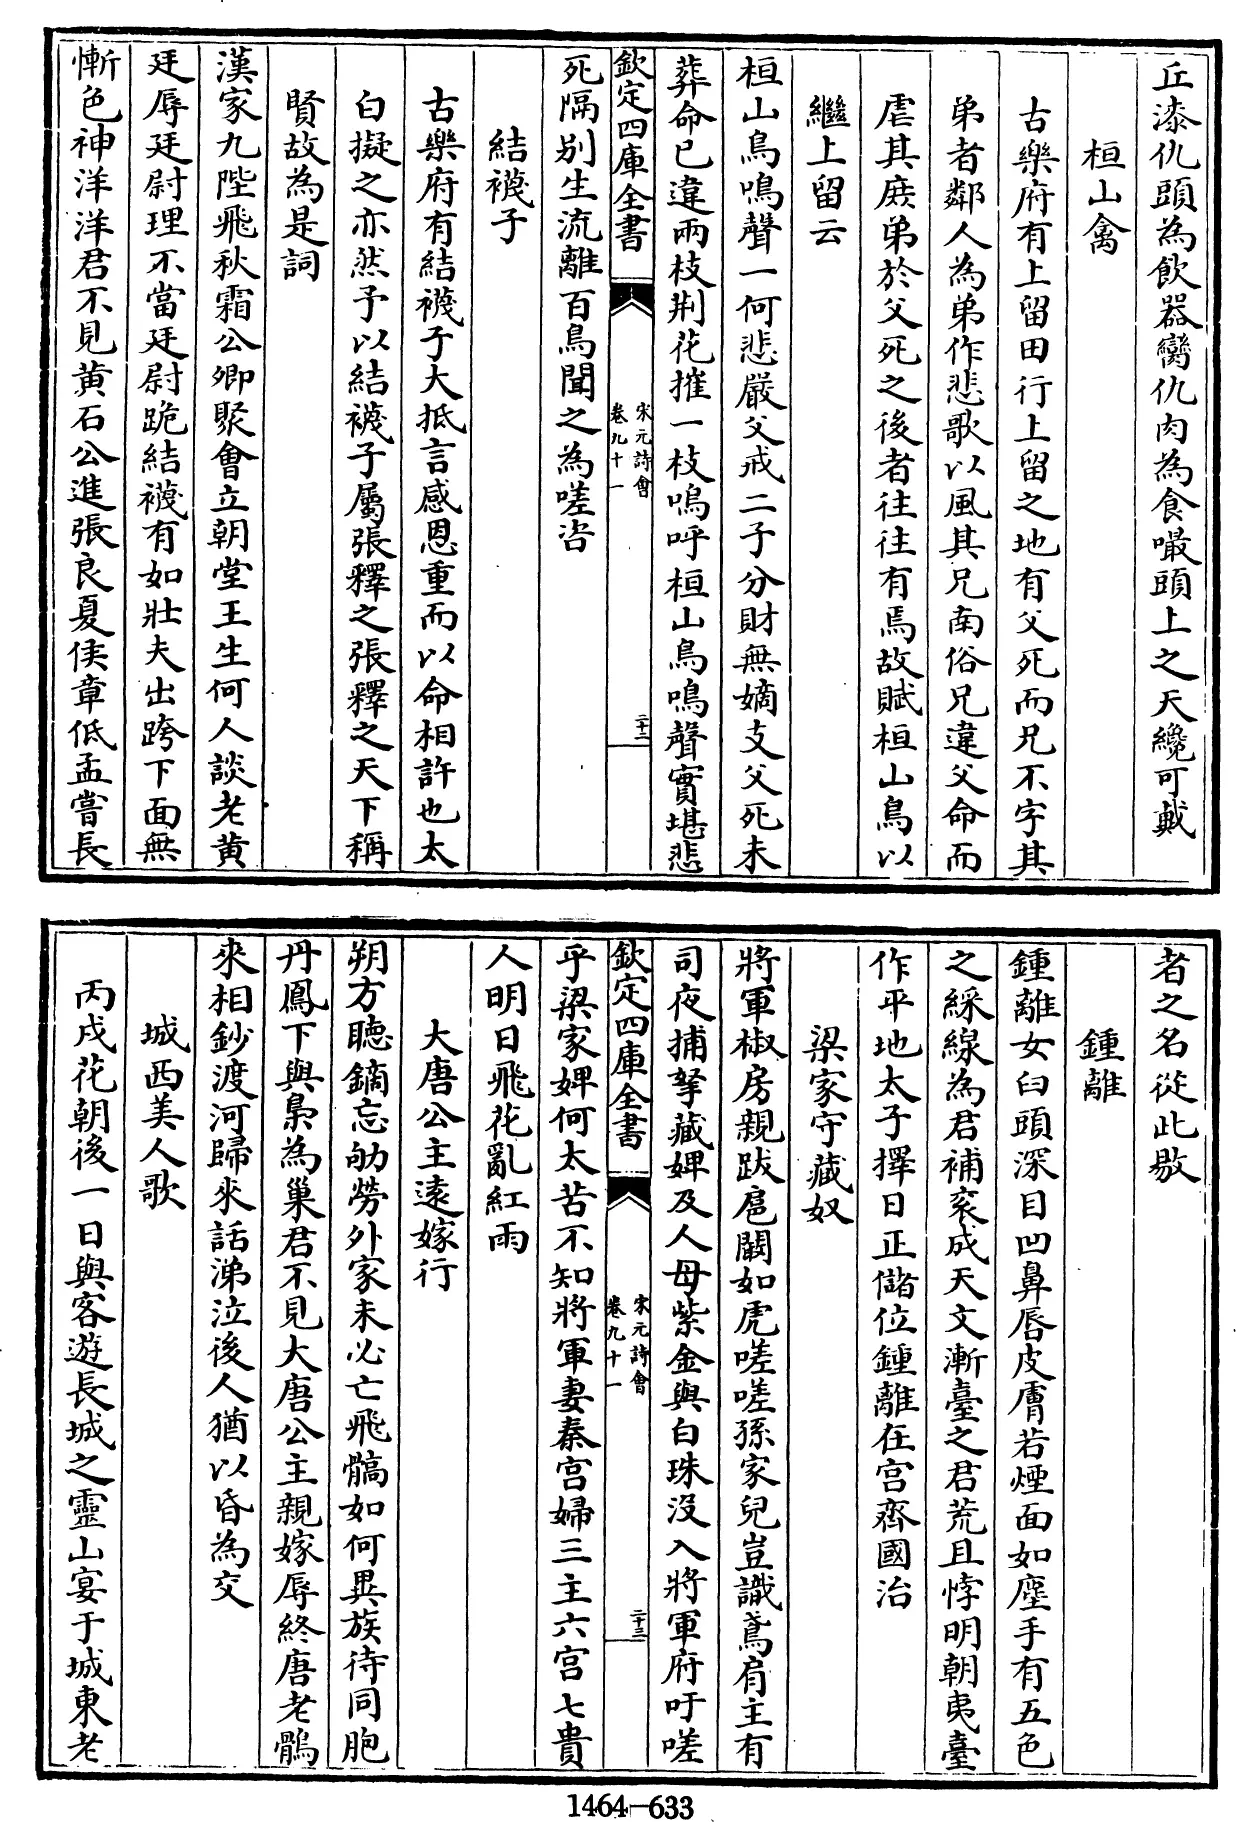 丘漆仇頭為飲器臠仇肉為食嘬頭上之天纔可戴
桓山禽
古樂府有上留田行上留之地有父死而兄不字其
弟者鄰人為弟作悲歌以風其兄南俗兄違父命而
虐其庶弟於父死之後者往往有焉故賦桓山鳥以
繼上留云
桓山鳥鳴聲一何悲嚴父戒二子分財無嫡支父死未
葬命已違兩枝荆花摧一枝嗚呼桓山鳥鳴聲實堪悲
欽定四庫全書
宋元詩會
卷九十一
二十二
死隔别生流離百鳥聞之為嗟咨
結襪子
古樂府有結襪子大抵言感恩重而以命相許也太
白擬之亦然予以結襪子屬張釋之張釋之天下稱
賢故為是詞
漢家九陛飛秋霜公卿聚會立朝堂王生何人談老黄
廷辱廷尉理不當廷尉跪結襪有如壯夫出跨下面無
慚色神洋洋君不見黄石公進張良夏侯章低孟嘗長
者之名從此敭
鍾離
鍾離女臼頭深目凹鼻唇皮膚若煙面如塵手有五色
之綵線為君補衮成天文漸臺之君荒且悖明朝夷臺
作平地太子擇日正儲位鍾離在宫齊國治
梁家守藏奴
將軍椒房親跋扈闞如虎嗟嗟孫家兒豈識鳶肩主有
司夜捕拏藏婢及人母紫金與白珠沒入將軍府吁嗟
欽定四庫全書
宋元詩會
卷九十一
二十三
乎梁家婢何太苦不知將軍妻秦宫婦三主六宫七貴
人明日飛花亂紅雨
大唐公主遠嫁行
朔方聽鏑忘劬勞外家未必亡飛髇如何異族待同胞
丹鳳下與梟為巢君不見大唐公主親嫁辱終唐老鶻
來相鈔渡河歸來話涕泣後人猶以昏為交
城西美人歌
丙戌花朝後一日與客遊長城之靈山宴于城東老
1464-633